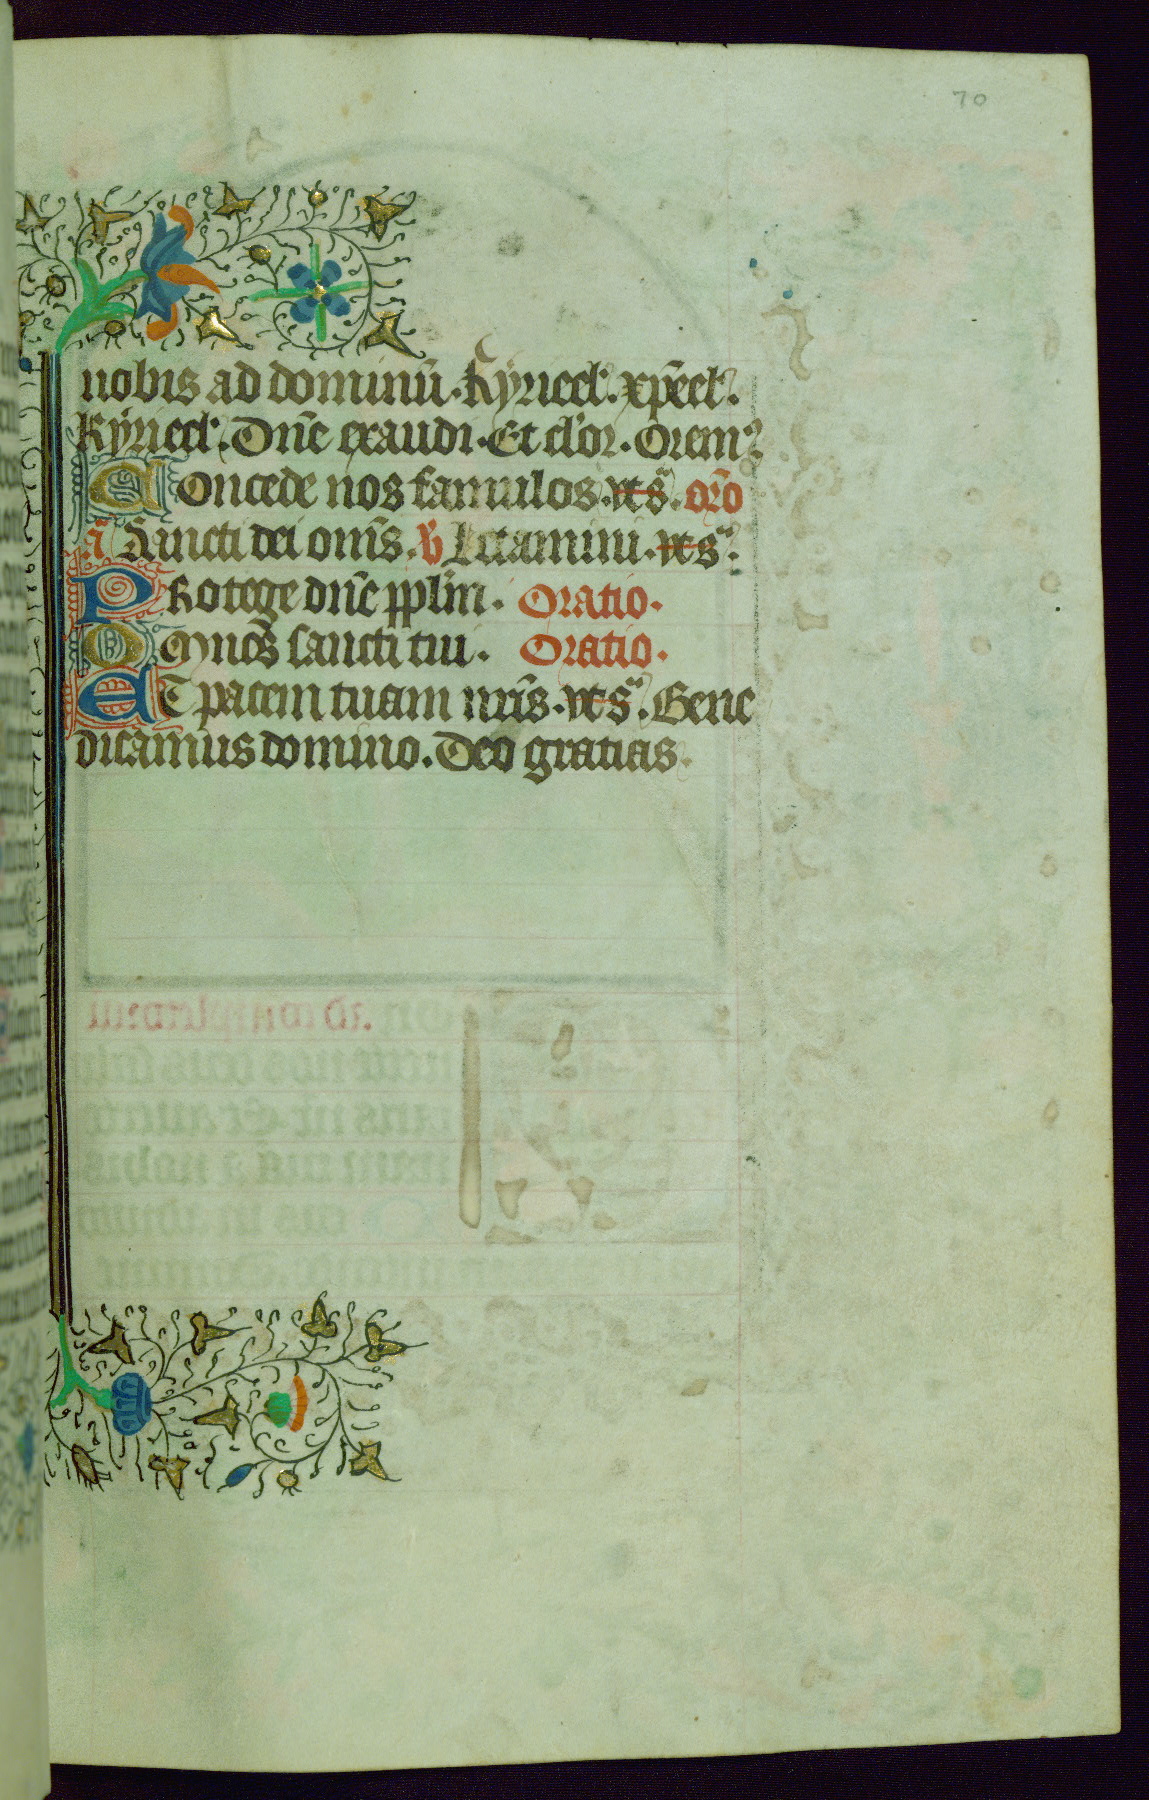 70
nobis ad dominū. Kyrieel'. xp̄eel'.
Kyrieel'. Dn̄e exaudi. Et cl'or. Orem?
Concede nos famulos. vt sᵃ. or̄o
aᵃ Sancti dei om̄s. v̄ Letamini. vt sᵃ.
Protege dn̄e pplm̄. Oratio.
Omnes sancti tui. Oratio.
Et pacem tuam nr̄is. vt sᵃ. Bene
dicamus domino. Deo gratias.